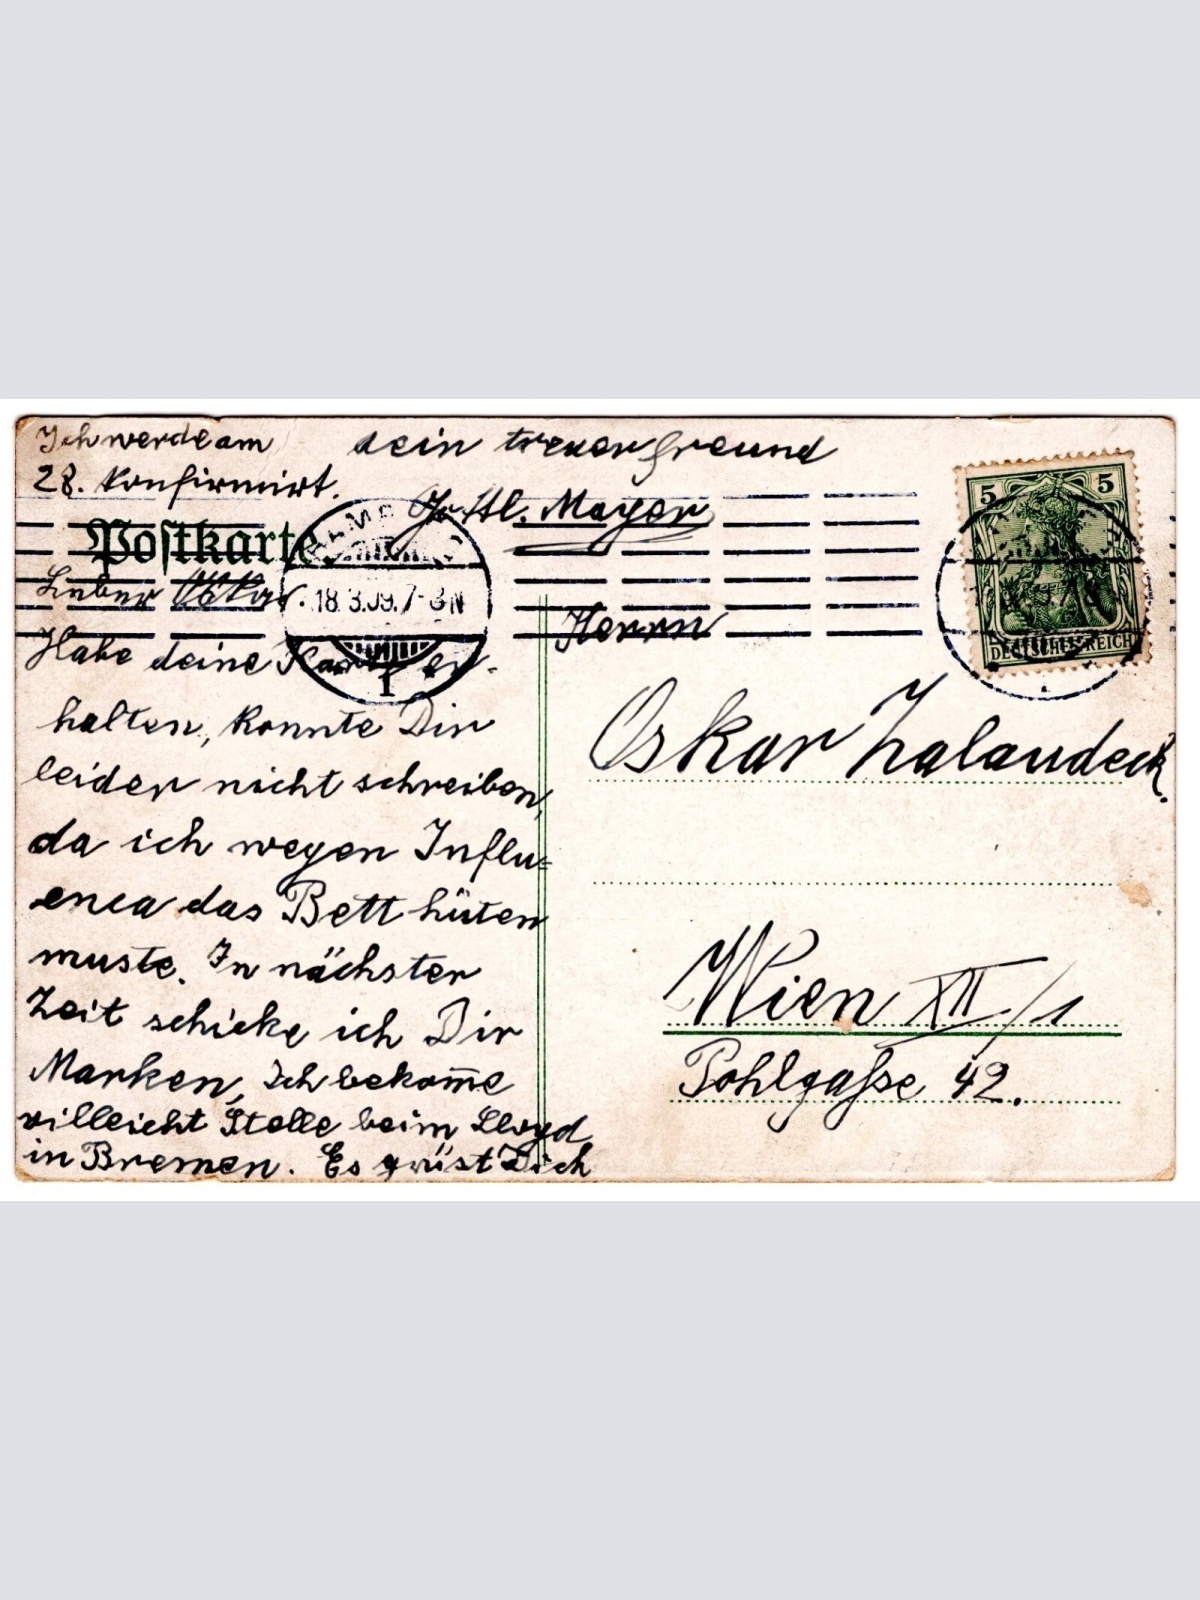 Ich werde am
28. Konfirmirt.
dein treuer freund
Mayer
Postkarte
18.3.09.7-8N
1
5 5
DEUTSCHES REICH
Lieber Oskar.
Habe deine Karte er-
halten, konnte Dir
leider nicht schreiben,
da ich wegen Influ=
enca das Bett hüten
muste. In nächster
Zeit schicke ich Dir
Marken, Ich bekom̅e
villeicht Stelle beim Lloyd
in Bremen. Es grüst Dich
Herrn
Oskar Zalaudeck.
Wien XII/1
Pohlgaße 42.